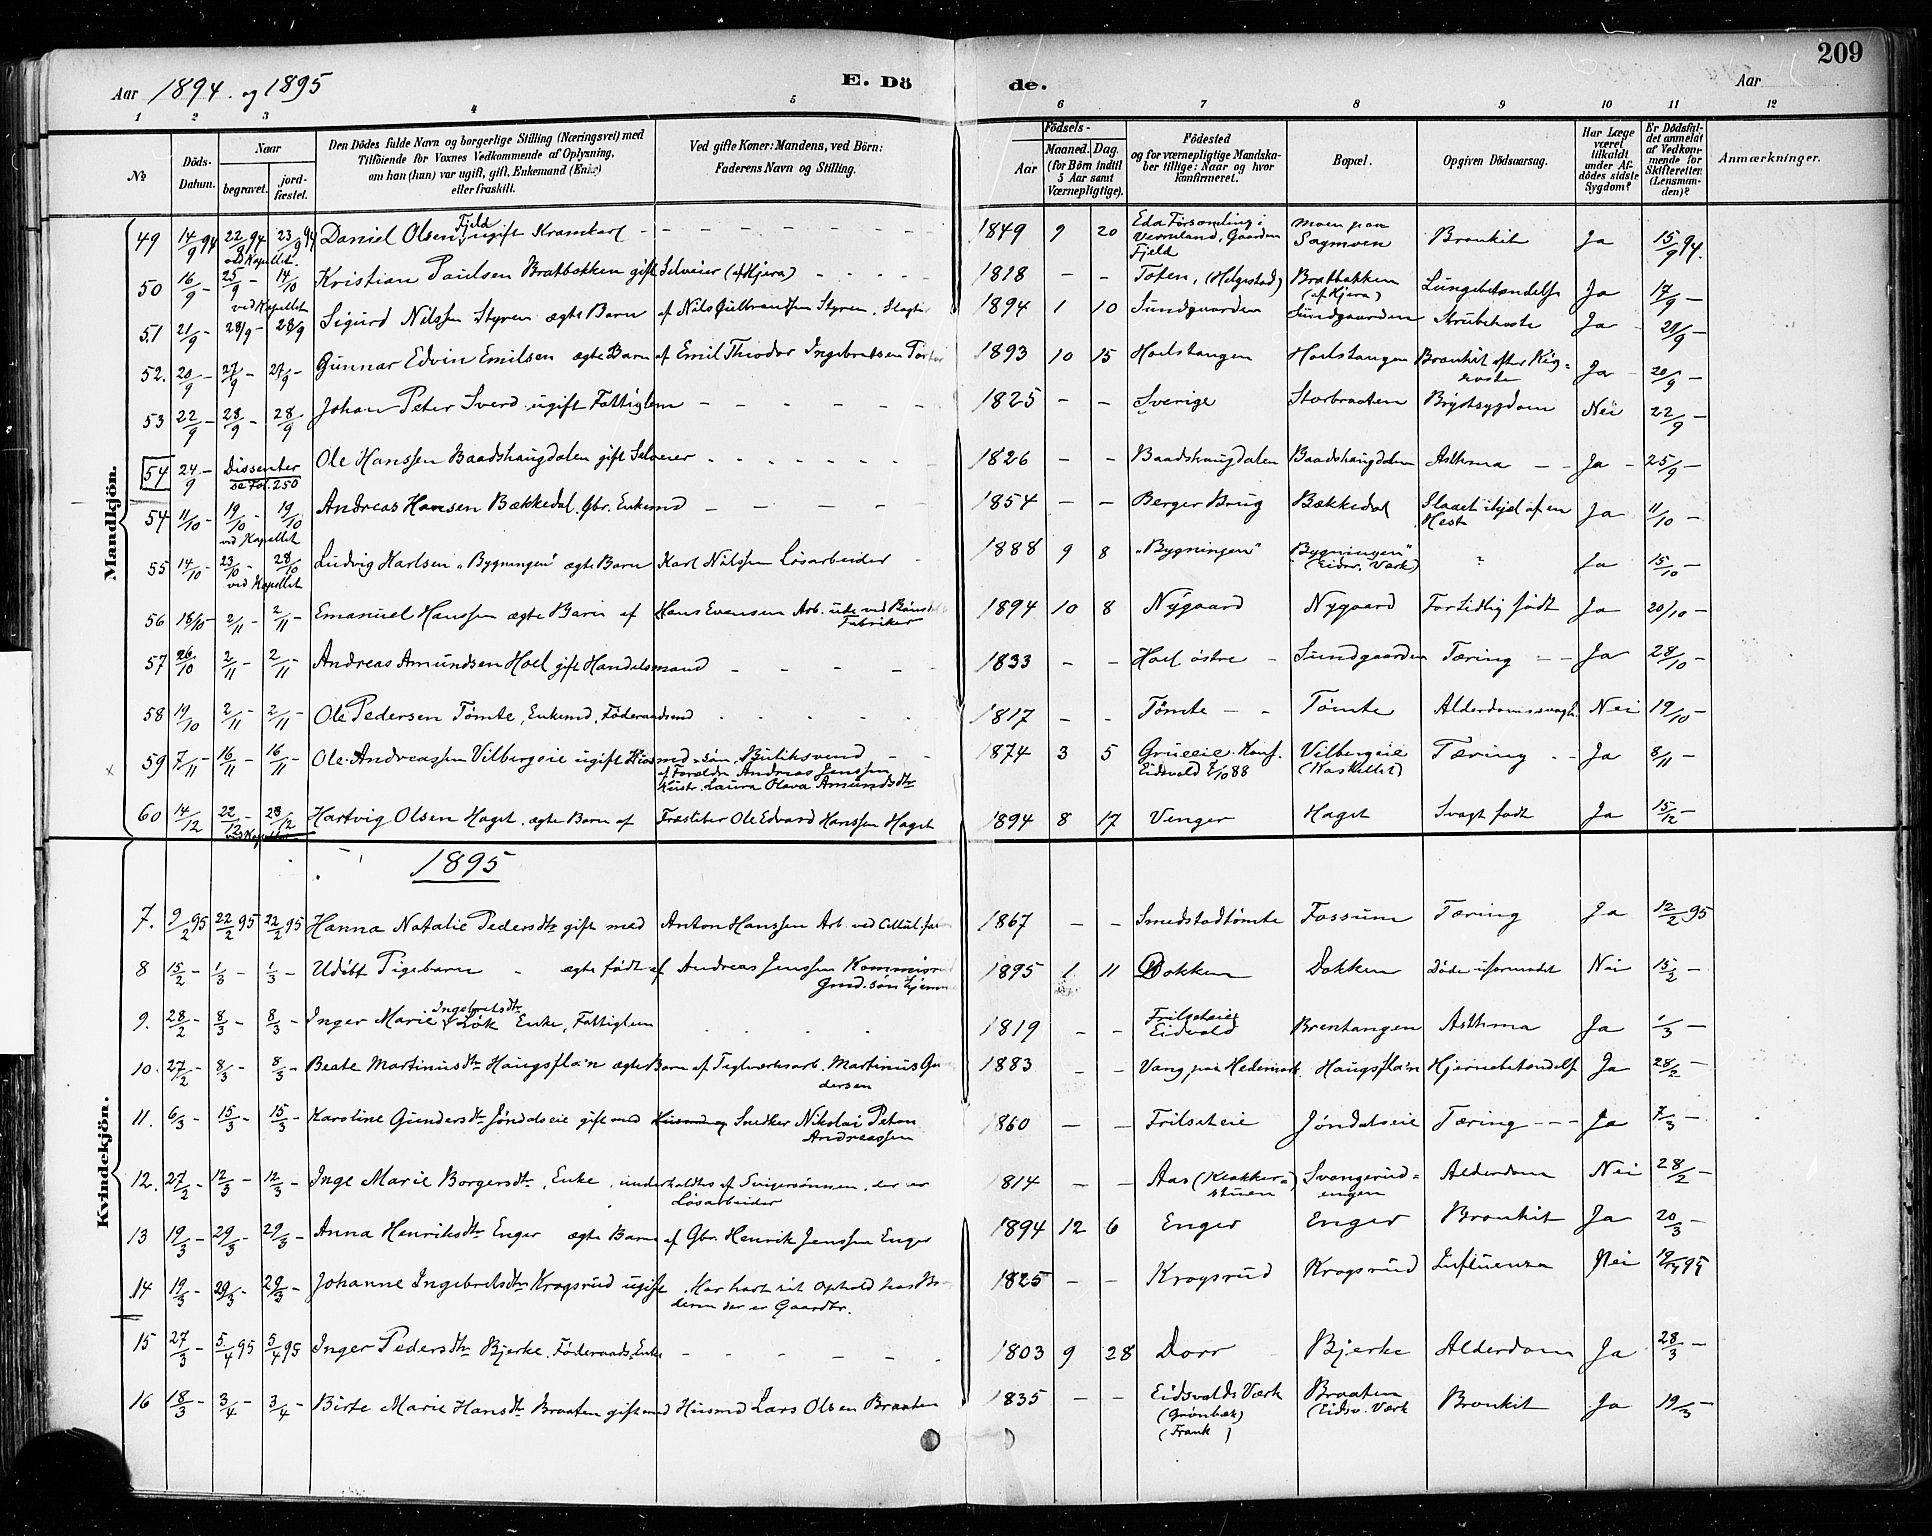 209
Aar 1894 og 1895
E. Dö de.
Aar
1 2 3 4 5 6 7 8 9 10 11 12
№
Döds-Datum.
Naar
begravet.
jord-fæstet.
Den Dödes fulde Navn og borgerlige Stilling (Næringsvei) med Tilföiende for Voxnes Vedkommende af Oplysning, om han (hun) var ugift, gift, Enkemand (Enke) eller fraskilt.
Ved gifte Koner: Mandens, ved Börn: Faderens Navn og Stilling.
Födsels-
Aar
Maaned. Dag. (for Börn indtil 5 Aar samt Værnepligtige).
Födested og for værnepligtige Mandskaber tillige: Naar og hvor konfirmeret.
Bopæl.
Opgiven Dödsaarsag.
Har Læge været tilkaldt under Afdödes sidste Sygdom?
Er Dödsfaldet anmeldt af Vedkommende for Skifteretten (Lensmanden)?
Anmærkninger.
Mandkjön.
49 14/9 94 22/9 94 ved Kapellet 23/9 94 Daniel Olsen Fjeld ugift Kramkarl - 1849 9 20 Eda Forsamling i Vermland, Gaarden Fjeld Moen paa Sagmoen Bronkit Ja 15/9 94.
50 16/9 - 25/9 - ved Kapellet 14/10 Kristian Paulsen Bratbakken gift Selveier (af Kjera) - 1818 - - Toten, (Helgestad) Bratbakken (af Kjera) Lungebetændelse Ja 17/9 -
51 21/9 - 28/9 - 28/9 Sigurd Nilssen Styren ægte Barn af Nils Gulbrandsen Styren, Slagter 1894 1 10 Sundgaarden Sundgaarden Strubehoste Ja 21/9 -
52. 20/9 - 27/9 - 27/9 - Gunnar Edvin Emilsen ægte Barn af Emil Theodor Ingebretsen 1893 10 15 Hoelstangen Hoelstangen Bronkit efter Kighoste Ja 20/9 -
53 22/9 - 28/9 - 28/9 Johan Peter Sverd ugift Fattiglem - 1825 - - Sverige Storbraaten Brystsygdom Nei 22/9 -
54 24/9 - Dissenter se Fol. 250 Ole Hanssen Baadshaugdalen gift Selveier - 1826 - - Baadshaugdalen Baadshaugdalen Asthma - - Ja - 25/9 -
54 11/10 - 19/10 - ved Kapellet 19/10 Andreas Hansen Bækkedal. Gbr. Enkemd - 1854 - - Berger Brug Bækkedal Slaaet ihjel af en Hest Ja 11/10 -
55 14/10 - 23/10 - ved Kapellet 28/10 Ludvig Karlsen „Bygningen" ægte Barn Karl Nilssen Løsarbeider 1888 9 8 „Bygningen" „Bygningen" (Eidsv. Værk) " Ja 15/10 -
56 18/10 - 2/11 - 2/11 - Emanuel Hanssen ægte Barn af Hans Evensen Arb. ude ved Bönsdals Fabriker 1894 10 8 Nygaard Nygaard Fortidlig født Ja 20/10 -
57 26/10 2/11 - 2/11 - Andreas Amundsen Hoel gift Handelsmand - 1833 - - Hoel østre - Sundgaarden Tæring - - Ja 28/10 -
58 19/10 2/11 - 2/11 - Ole Pedersen Tömte, Enkemd, Föderaadsmd 1817 - - Tömte - - Tömte Alderdomssvagh. Nei 19/10 -
59 7/11 - 16/11 - 16/11 - Ole Andreassen Vilbergseie ugift Husmdssøn. Butiksvend af Forældre Andreas Jenssen Hustr. Laura Olava Amundsdtr 1874 3 5 Grueeie. Konf. Eidsvold 7/10 88 Vilbergeie (Kaskellet) Tæring - - Ja 8/11 -
60 14/12 22/12 - ved Kapellet 28/12 Hartvig Olsen Haget. ægte Barn af Træsliber Ole Edvard Hanssen Haget 1894 8 17 Venger Haget Svagt født Ja 15/12 -
Kvindekjön.
1895
7. 9/2 95 22/2 95 22/2 95 Hanna Natalie Pedersdtr gift med Anton Hanssen Arb. ved Cellul.fab 1867 - - Smedstadtömte Fossum Tæring Ja 12/2 95
8 15/2 - 1/3 - 1/3 - Udöbt Pigebarn - ægte født af Andreas Jenssen Kommisrud Grnd.søn hjemme 1895 1 11 Dokken Dokken Döde uformodet Nei 15/2 -
9. 28/2 - 8/3 - 8/3 - Inger Marie Ingebretsdtr Løk Enke, Fattiglem 1819 - - Frilseteie Eidsvold Brentangen Asthma Ja 1/3 -
10. 27/2 - 8/3 - 8/3 - Beate Martinusdtr Haugsfla'n ægte Barn af Teglværksarb. Martinus Gudersen 1883 - - Vang paa Hedemark. Haugsfla'n Hjernebetændelse Ja 28/2 -
11. 6/3 - 15/3 - 15/3 - Karoline Gundersdtr Jøndalseie gift med Husmd og Snedker Nikolai Peter Andreassen 1860 - - Frilseteie Jøndalseie Tæring - - - Ja 7/3 -
12. 27/2 - 12/3 - 12/3 - Inge Marie Borgersdtr, Enke, underholdtes af Svigersønnen, der er Løsarbeider 1814 - - Aas (Klokkerstuen) Svangerudengen Alderdom Nei 28/2 -
13 19/3 - 29/3 - 29/3 - Anna Henriksdtr Enger ægte Barn af Gbr. Henrik Jenssen Enger 1894 12 6 Enger Enger Bronkit Ja 20/3 -
14 19/3 - 29/3 - 29/3 - Johanne Ingebretsdtr Krogsrud ugift. Har havt sit Ophold hos Broderen der er Gaardbr. 1825 - - Krogsrud Krogsrud Influenza Nei 19/4 95
15 27/3 - 5/4 95 5/4 95 Inger Pedersdtr Bjerke. Föderaads Enke - 1803 9 28 Dorr Bjerke Alderdom Ja 28/3 -
16 18/3 - 3/4 - 3/4 - Birte Marie Hansdtr Braaten gift med Husmd Lars Olsen Braaten 1835 - - Eidsvolds Værk (Grönbæk) (Frank) Braaten (Eidsv. Værk Bronkit Ja 19/3 -